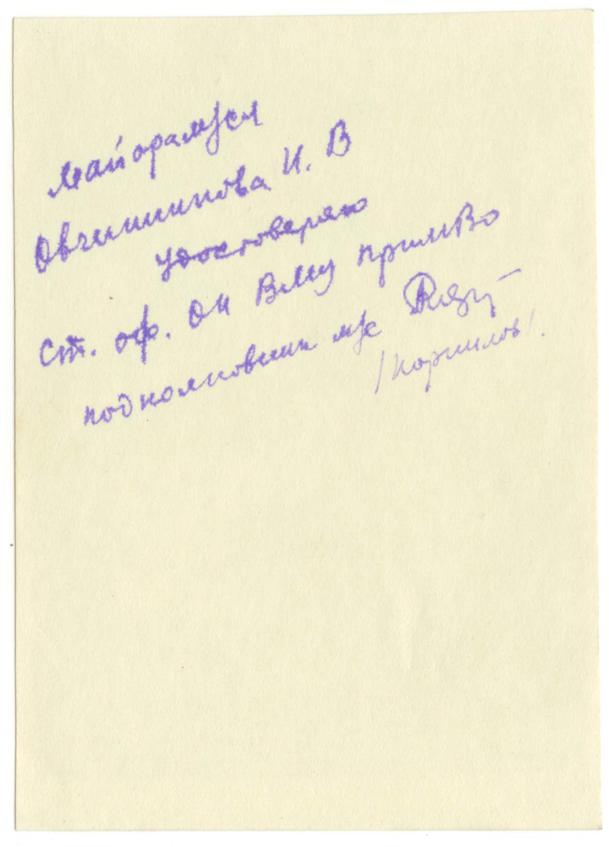 майора м/сл
Овчинникова И. В
удостоверяю
Ст. оф. ОК ВМУ ПримВО
подполковник м/с
/Корнилов/.